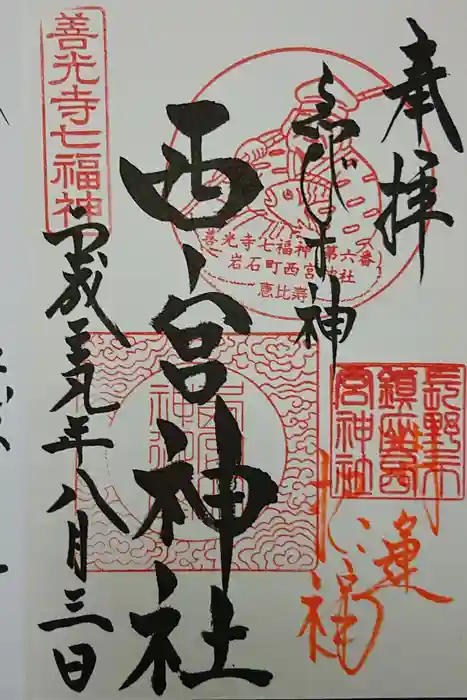 奉拝
ゑびす神
西宮神社
平成二九年八月三日
善光寺七福神
善光寺七福神 第六番
岩石町西宮神社
恵比寿
長野市
鎮座西
宮神社
運
福